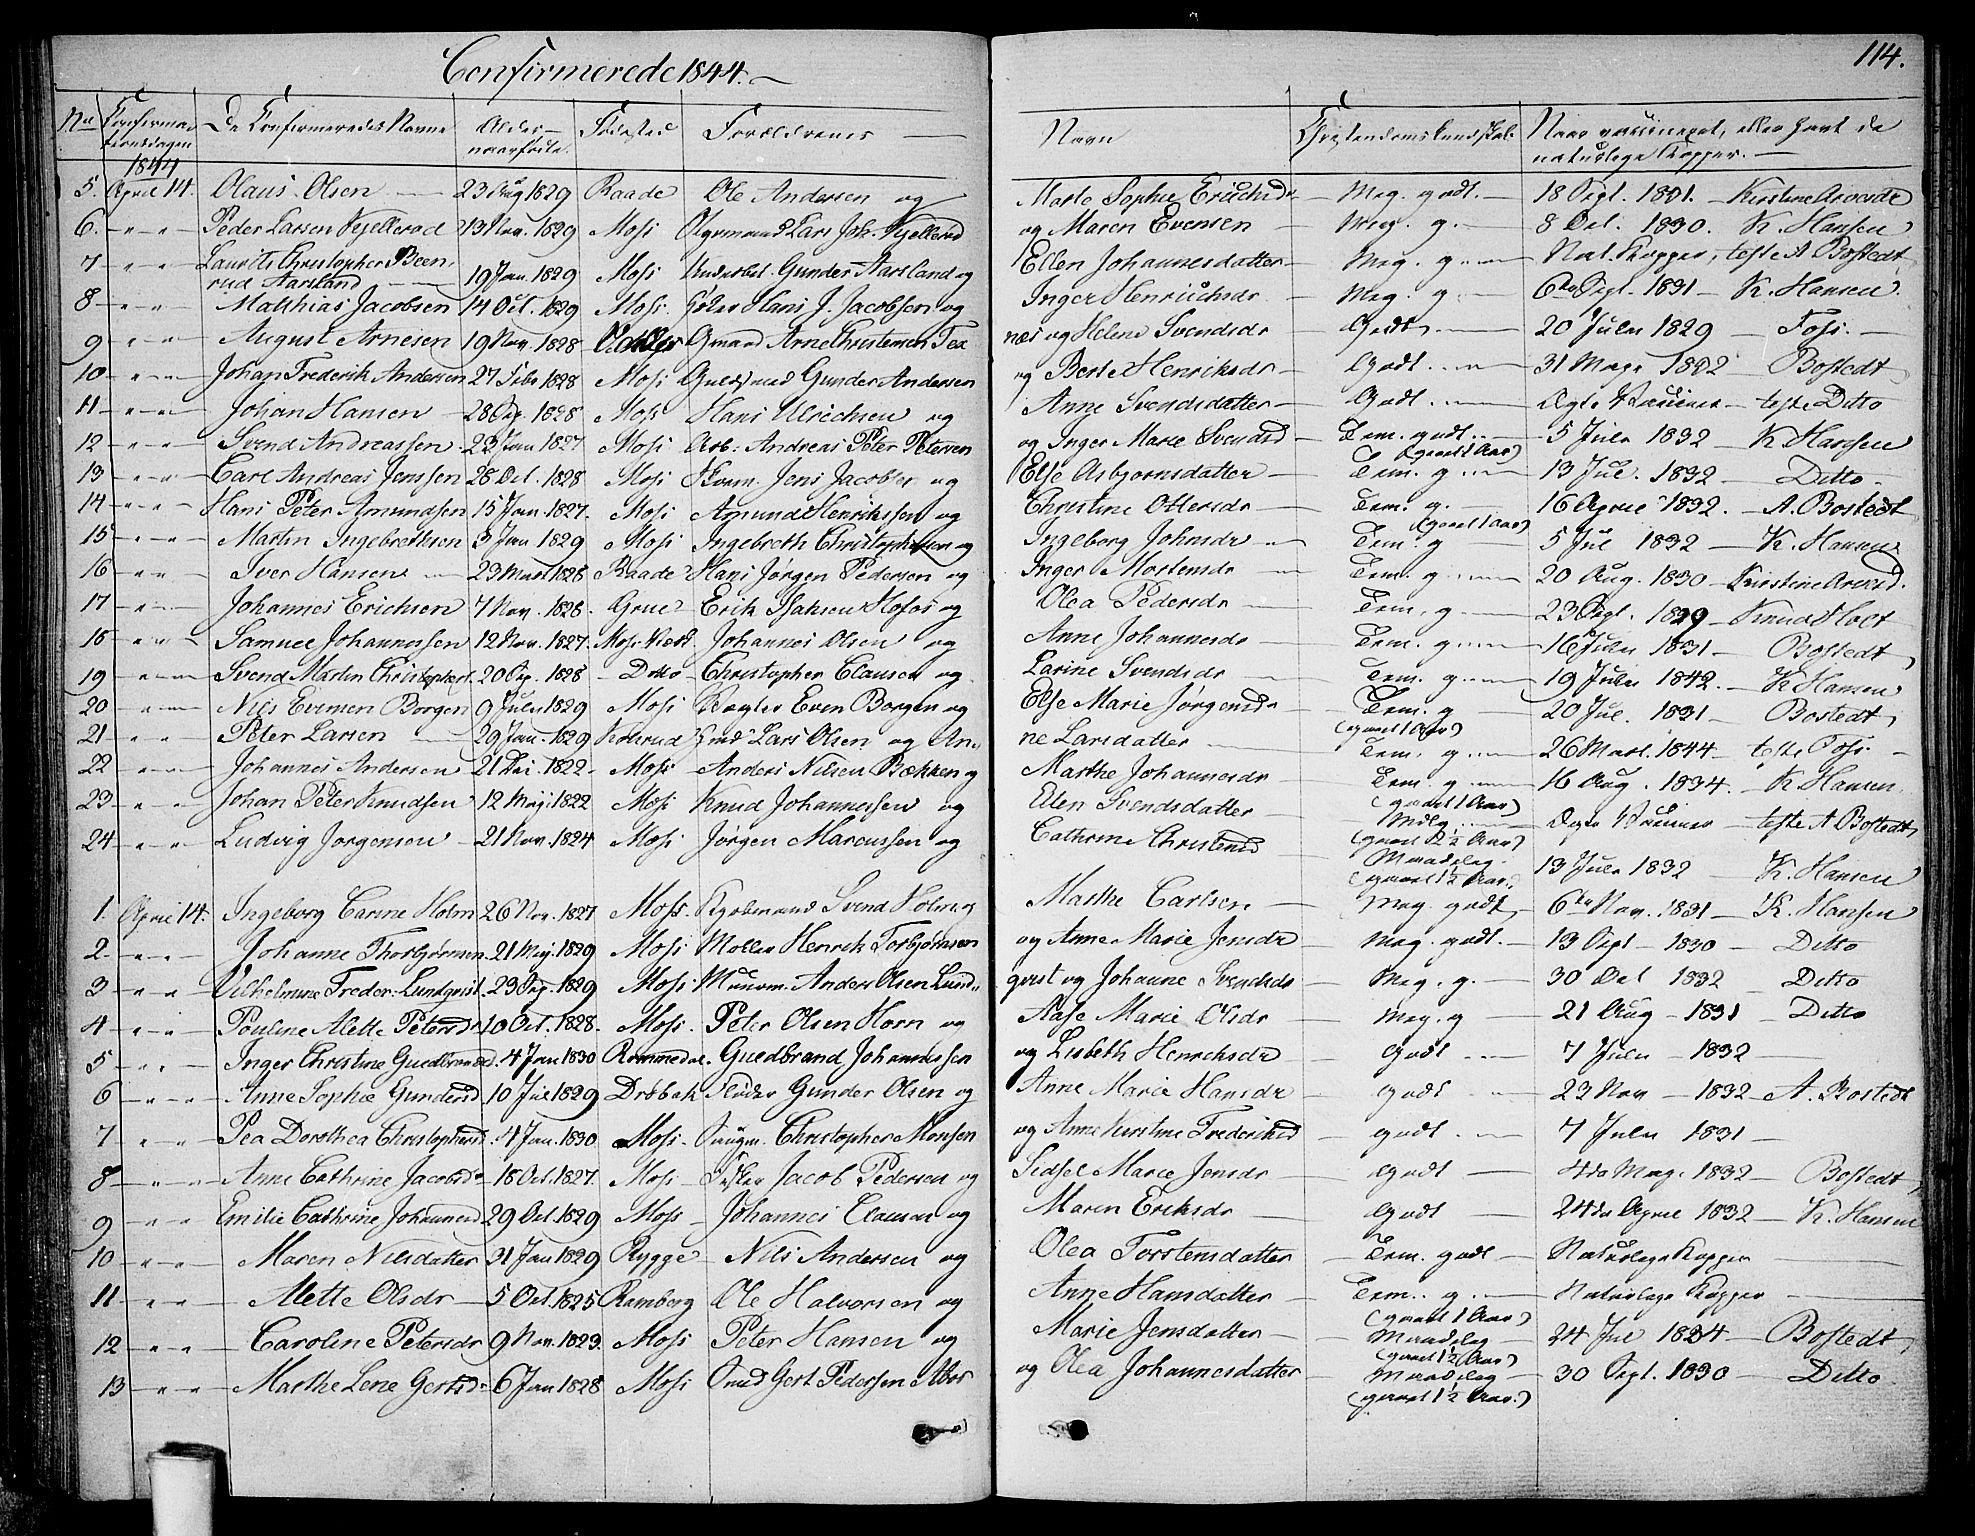 Confirmerede 1844.
114.
No Confirmationsdagen De Confirmeredes Navne Alder naar fødte. Fødested Forældrenes Navn Christendomskundskab Naar vaccineret, eller havt de naturlige Kopper.
1844
5. April 14. Olaus Olsen 23 Aug 1829 Raade Ole Andersen og Marte Sophie Erichsdr Meg. godt. 18 Sept. 1831. Kirstine Arvede
6. " " Peder Larsen Kjellerød 13 Nov. 1829 Moss Lars Joh. Kjellerød og Maren Evensen Meg. g. 8 Oct. 1830. K. Hansen
7 " " Laurits Christopher Been-
rud Aarsland 19 Jan. 1829 Moss Gunder Aarsland og Ellen Johannesdatter Meg. g. Nat. Kopper, teste A Bostedt
8 " " Matthias Jacobsen 14 Oct. 1829 Moss. Hans J. Jacobsen og Inger Henrichsdr Meg. g. 6te Sept. 1831 K. Hansen.
9 " " August Arnesen 19 Nov. 1828 Gmand Arne Christensen Tex næs og Helene Svendsdr Godt 20 Julii 1829 Foss.
10 " " Johan Frederik Andersen 27 Febr 1828 Moss Guldsmed Gunder Andersen og Berte Henriksdr Godt. 31 Maji 1832 Bostedt
11 " " Johan Hansen 28 Sep. 1828 Moss Hans Ulrichsen og Anne Svendsdatter Godt. teste Ditto
12 " " Svend Andreassen 23 Jan 1827 Moss Arb: Andreas Peter Petersen og Inger Marie Svendsd Tem. godt. (gaaet 1 Aar) 5 Julii 1832 K Hansen
13 " " Carl Andreas Jenssen 28 Oct. 1828 Moss Jens Jacobsen og Else Asbjørnsdatter Tem. g. 13 Jul. 1832 Ditto
14 " " Hans Peter Amundsen 15 Jan. 1827. Moss Amund Henrikssen og Christine Ottersdr Tem. g. (gaaet 1 Aar) 16 April 1832. A. Bostedt
15 " " Martin Ingebrethsen 3 Jan 1829 Moss Ingebreth Christophersen og Ingeborg Johnsdr Tem. g 5 Jul 1832 K. Hansen
16 " " Iver Hansen 23 Mart 1828 Raade Hans Jørgen Pedersen og Inger Mortensdr Tem. g. 20 Aug. 1830 Kirstine Arved.
17 " " Johannes Erichsen 7 Nov. 1828. Grue Erik Isaksen Hofos og Olea Pedersdr Tem. g. 23 Sept. 1829 Knud Holt
18 " " Samuel Johannessen 12 Nov. 1827. Moss Johannes Olsen og Anne Johannesdr Tem. g. 16 Julii 1831 Bostedt
19 " " Svend Martin Christophers. 20 Sep. 1828 Ditto Christopher Clausen og Larine Svendsdr Tem. g. 19 Julii 1842. K Hansen
20 " " Nils Evensen Borgen 9 Julii 1829 Moss Even Borgen og Else Marie Jørgensdr Tem. g (gaaet 1 Aar) 20 Jul. 1831 Bostedt
21 " " Peter Larsen 29 Jan. 1829 Lars Olsen og An- ne Larsdatter Tem. g. 26 Mart. 1844 teste Foss.
22 " " Johannes Andersen 21 Dec. 1822 Moss Anders Nilsen Bækken og Marthe Johannesdr Tem. g. (gaaet 1 Aar) 16 Aug. 1834. K Hansen
23 " " Johan Peter Knudsen 12 Maji 1822 Moss Knud Johannessen og Ellen Svendsdatter Mdlg. (gaaet 2 1/2 Aar) teste A Bostedt
24 " " Ludvig Jørgensen 21 Nov. 1824 Moss Jørgen Marcussen og Cathrine Christensd Maadelig (gaaet 1 1/2 Aar.) 13 Julii 1832 K. Hansen
1. April 14. Ingeborg Carine Holm 26 Nov. 1827 Moss. Svend Holm og Marthe Carlsen Meg. godt 6te Nov. 1831 K. Hansen
2. " " Johanne Thorbjørnsen 21 Maj. 1829 Moss Møller Henrik Torbjørnsen og Anne Marie Jensdr Meg. godt. 13 Sept 1830 Ditto
3 " " Vilhelmine Freder. Lundqvist. 23 Sep. 1829 Moss Muurm. Anders Olsen Lund- qvist og Johanne Svendsdr Meg. g. 30 Oct 1832 Ditto
4 " " Pouline Alette Petersdr 10 Oct. 1828. Moss. Peter Olsen Horn og Aase Marie Olsdr Meg. g 21 Aug 1831 Ditto
5 " " Inger Christine Guldbrandsd. 4 Jan 1830 Rommedal. Guldbrand Johannessen og Lisbeth Henrichsdr Godt 7 Julii 1832
6 " " Anne Sophie Gundersd 10 Jul 1829 Drøbak Gunder Olsen og Anne Marie Hansdr godt 23 Nov 1832 A. Bostedt
7 " " Pea Dorothea Christophersd 4 Jan. 1830. Moss. Christopher Monsen og Anne Kirstine Frederiksd godt 7 Julii 1831
8 " " Anne Cathrine Jacobsdr 18 Oct. 1827. Moss Fisker Jacob Pedersen og Sidsel Marie Jensdr Godt 4de Maj. 1832 Bostedt
9 " " Emilie Cathrine Johannesd 29 Oct. 1829 Moss Johannes Clausen og Maren Eriksdr Godt 24de April 1832 K. Hansen
10 " " Maren Nilsdatter 31 Jan 1829 Rygge Nils Andersen og Olea Torstensdatter Tem. godt Naturlige Kopper
11 " " Alette Olsdr 5 Oct. 1825 Ramberg Ole Halvorsen og Anne Hansdatter Tem. g. (gaaet 1 Aar) Naturlige Kopper
12 " " Caroline Petersdr 9 Nov. 1823. Moss Peter Hansen og Marie Jensdatter Maadelig (gaaet 1 1/2 Aar) 24 Jul 1834 Bostedt
13 " " Marthe Lene Gertsdr 6 Jan 1828 Moss Smed Gert Pedersen Moss og Olea Johannesdatter Maadelig (gaaet 1 1/2 Aar.) 30 Sept. 1830 Ditto